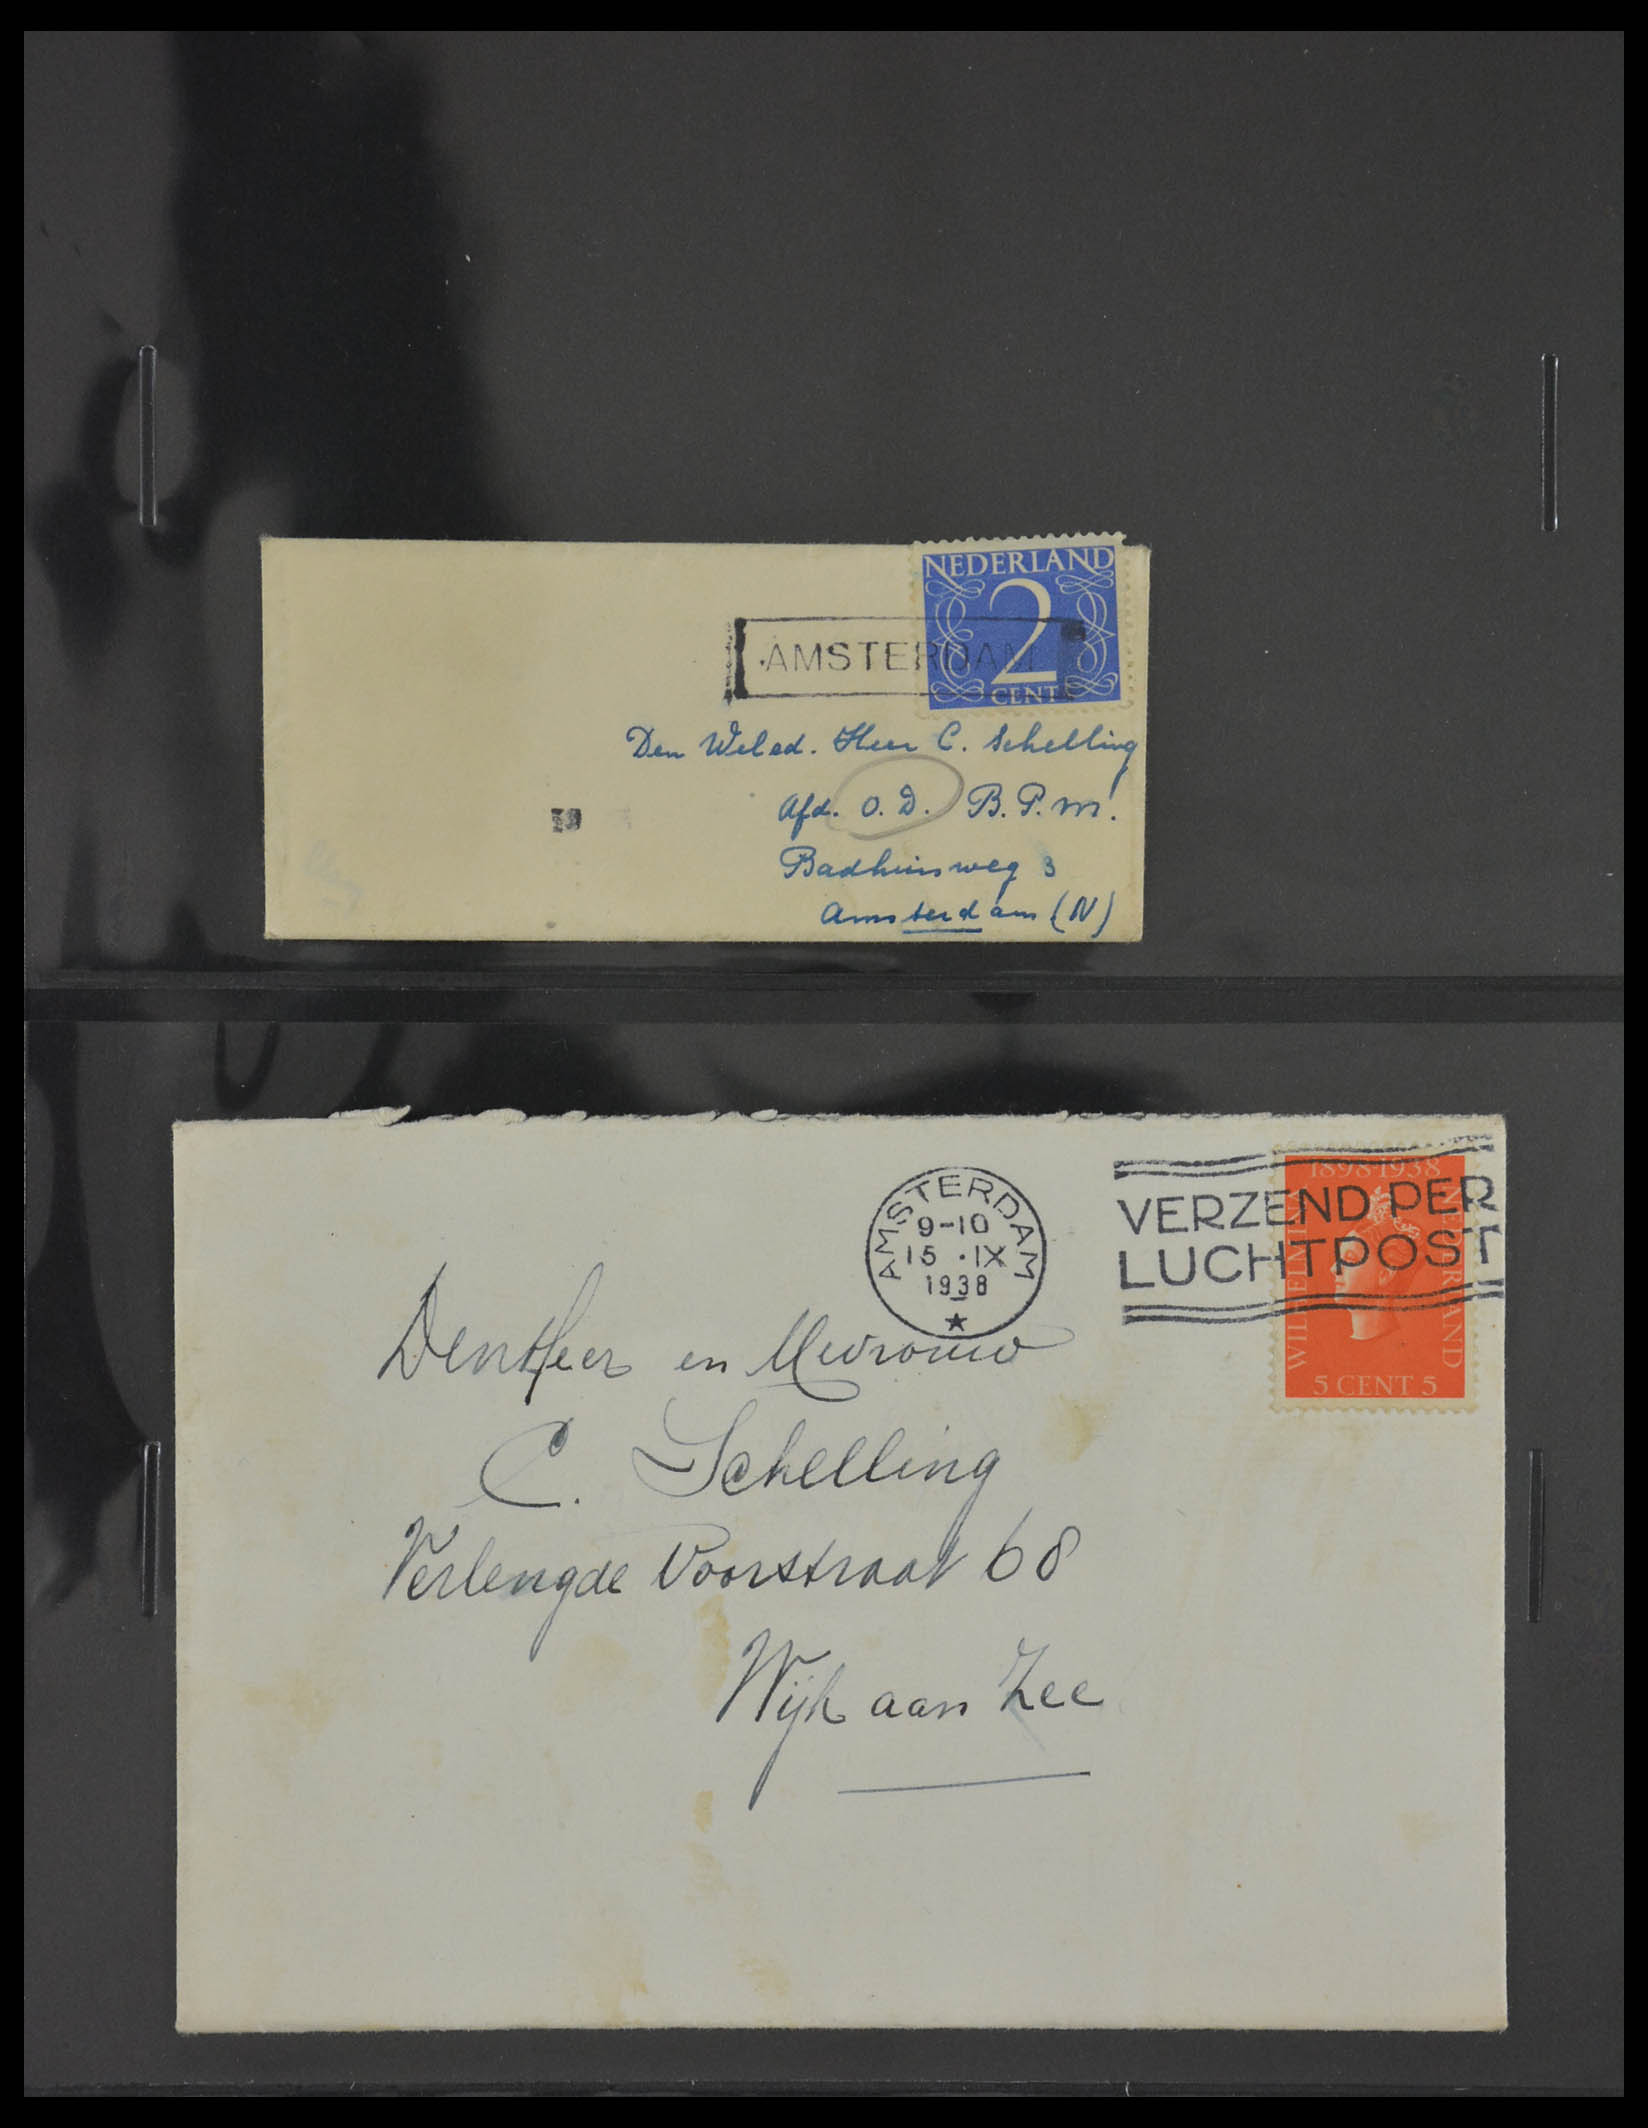 NEDERLAND
2
CENT
AMSTERDAM
Den Weled. Heer C. Schelling
Afd. O. D. B. P. M.
Badhuisweg 3
Amsterdam (N)
39
1898 1938
WILHELMINA
NEDERLAND
5 CENT 5
AMSTERDAM
9-10
15 ·IX
1938
VERZEND PER
LUCHTPOST
Den Heer en Mevrouw
C. Schelling
Verlengde Voorstraat 68
Wijk aan Zee